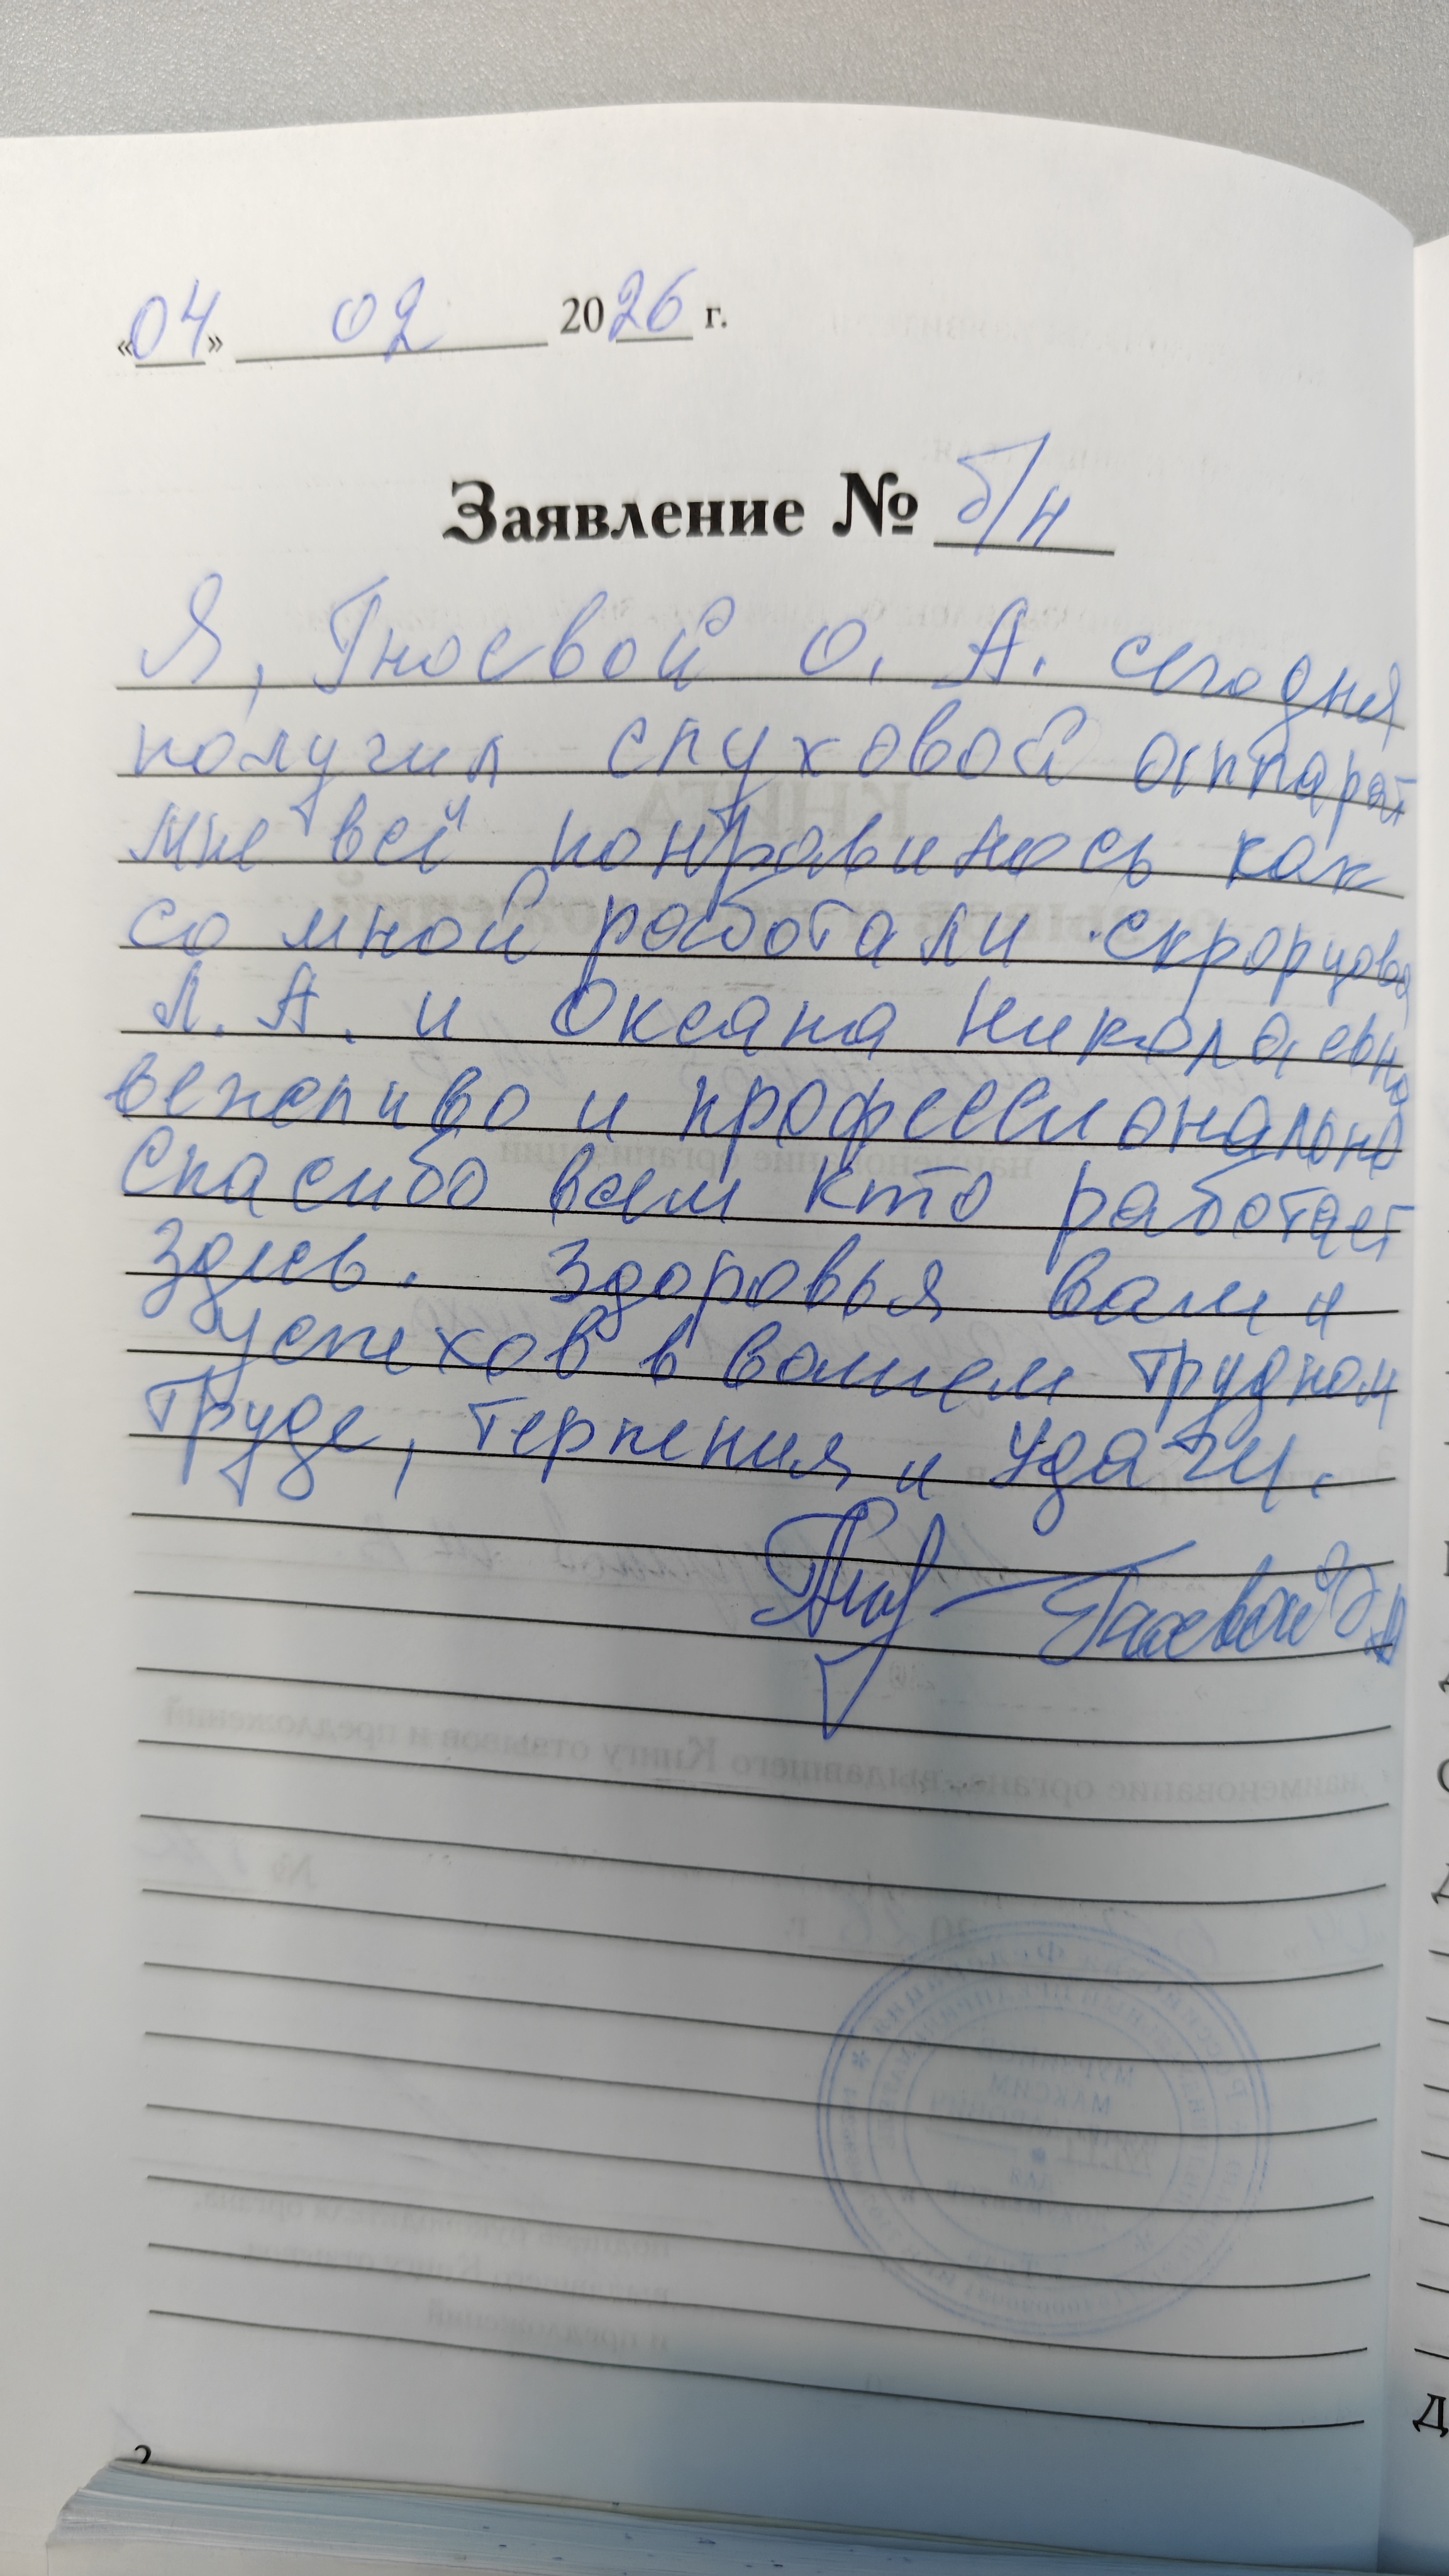 «04» 02 2026 г.
Заявление № б/н
Я, Гноевой О. А. сегодня
получил слуховой аппарат
мне всё понравилось как
со мной работали Скрорцова
Л. А. и Оксана Николаевна
вежливо и профессионально
Спасибо всем кто работает
здесь. Здоровья вам и
успехов в вашем трудном
труде, терпения и удачи.
Гноевой О А
2